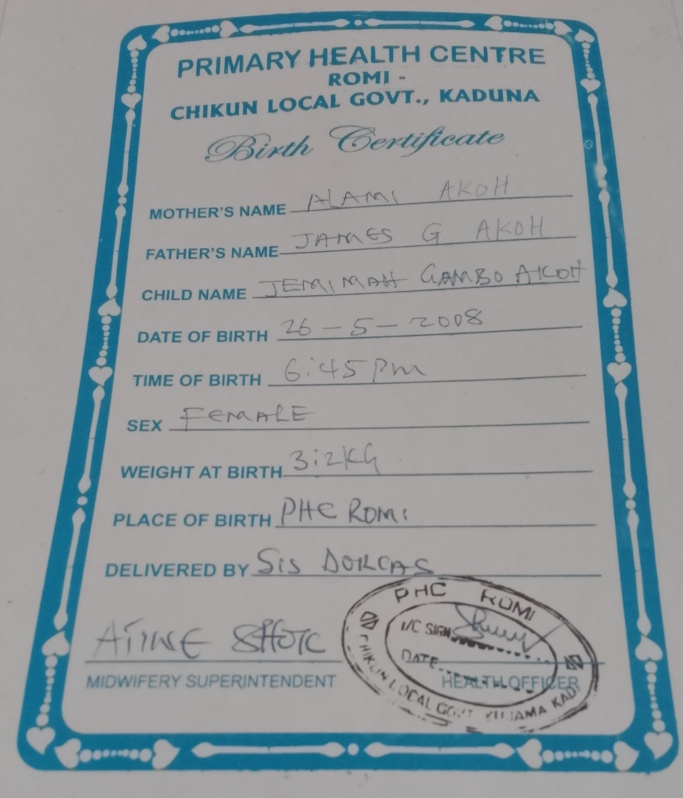 PRIMARY HEALTH CENTRE
ROMI -
CHIKUN LOCAL GOVT., KADUNA
Birth Certificate
MOTHER'S NAME ALAMI AKOH
FATHER'S NAME JAMES G AKOH
CHILD NAME JEMIMAH GAMBO AKOH
DATE OF BIRTH 26-5-2008
TIME OF BIRTH 6:45 Pm
SEX FEMALE
WEIGHT AT BIRTH 3:2KG
PLACE OF BIRTH PHC ROMI
DELIVERED BY SIS DORCAS
MIDWIFERY SUPERINTENDENT
HEALTH OFFICER
PHC ROMI
I/C SIGN
DATE
CHIKUN LOCAL GOVT